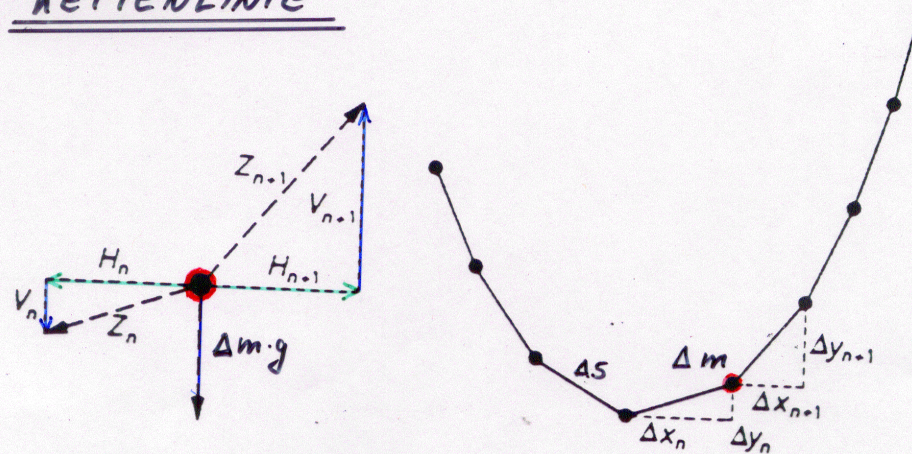 KETTENLINIE
Zₙ₊₁
Vₙ₊₁
Hₙ
Hₙ₊₁
Vₙ
Zₙ
Δm·g
Δs
Δm
Δyₙ₊₁
Δxₙ₊₁
Δxₙ
Δyₙ